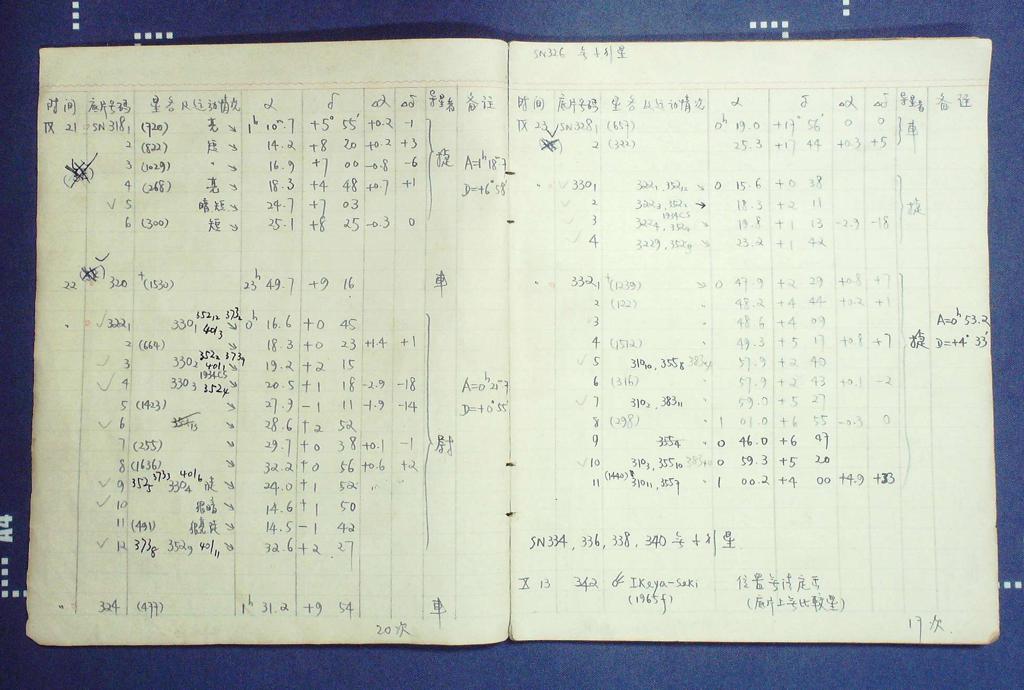 时间 底片号码 星名及运动情况 α δ Δα Δδ 导星者 备注
IX 21 SN318₁ (720) 亮 ↘ 1ʰ 10ᵐ.7 +5° 55′ +0.2 -1
2 (822) 短 ↘ 14.2 +8 20 +0.2 +3
3 (1029) " ↘ 16.9 +7 00 -0.8 -6 A=1ʰ18ᵐ.7
4 (268) 亮 ↘ 18.3 +4 48 +0.7 +1 D=+6°58′
✓ 5 暗短 ↘ 24.7 +7 03
6 (300) 短 ↘ 25.1 +8 25 -0.3 0
22 320 (1530) 23ʰ 49.7 +9 16 車
" ✓ 322₁ 330₁ 352₁₂ 373₂ 401₃ ↘ 0ʰ 16.6 +0 45
2 (664) ↘ 18.3 +0 23 +1.4 +1
✓ 3 330₂ 352₂ 373₉ 401₁ ↘ 19.2 +2 15
✓ 4 330₃ 1934CS 352₄ ↘ 20.5 +1 18 -2.9 -18 A=0ʰ25ᵐ.7
5 (1423) ↘ 27.9 -1 11 -1.9 -14 D=+0°55′
✓ 6 ↘ 28.6 +2 52
7 (255) ↘ 29.7 +0 38 +0.1 -1 尉
8 (1636) ↘ 32.2 +0 56 +0.6 +2
✓ 9 352₅ 373₃ 330₄ 401₆ ↘ 24.0 +1 52
✓ 10 很暗 ↘ 14.6 +1 50
11 (491) ↘ 14.5 -1 42
✓ 12 373₈ 352₉ 401₁₁ ↘ 32.6 +2 27
" 324 (477) 1ʰ 31.2 +9 54 車
20次
SN326 无小行星
时间 底片号码 星名及运动情况 α δ Δα Δδ 导星者 备注
IX 23 SN328₁ (657) 0ʰ 19.0 +17° 56′ 0 0 車
2 (322) 25.3 +17 44 +0.3 +5
" ✓ 330₁ 322₁, 352₁₂ ↘ 0 15.6 +0 38
✓ 2 322₃, 352₂ → 18.3 +2 11
3 322₄, 1934CS 352₄ ↘ 19.8 +1 13 -2.9 -18
✓ 4 322₉, 352₅ ↘ 23.2 +1 42
332₁ (1239) ↘ 0 47.9 +2 29 +0.8 +7
2 (122) " 48.2 +4 44 +0.2 +1
3 " 48.6 +4 09 A=0ʰ53.2
4 (1512) " 49.3 +5 17 +0.8 +7 D=+4°33′
✓ 5 310₁₀, 355₈ " 57.9 +2 40
6 (316) " 57.9 +2 43 +0.1 -2
✓ 7 310₂, 383₁₁ " 59.0 +5 27
8 (298) " 1 01.0 +6 55 -0.3 0
9 355₄ " 0 46.0 +6 47
✓ 10 310₃, 355₁₀ 0 59.3 +5 20
11 (1440) 310₁₁, 355₇ " 1 00.2 +4 00 +4.9 +33
SN334, 336, 338, 340 无小行星
X 13 342 Ikeya-Seki 位置等待定出
(1965f) (底片上无比较星)
17次
A4